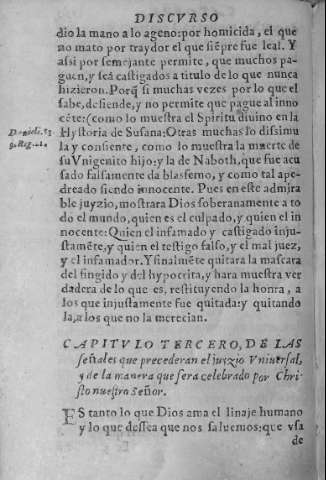 DISCVRSO
dio la mano a lo ageno: por homicida, el que
no mato por traydor el que siẽpre fue leal. Y
assi por semejante permite, que muchos pa-
guen, y seã castigados a titulo de lo que nunca
hizieron. Porq̃ si muchas vezes por lo que el
sabe, defiende, y no permite que pague al inno
cẽte: (como lo muestra el Spiritu diuino en la
Danieli. 13
Hystoria de Susana: Otras muchas lo dissimu
la y consiente, como lo muestra la muerte de
su Vnigenito hijo: y la de Naboth, que fue acu
sado falsamente da blasfemo, y como tal ape-
dreado siendo innocente. Pues en este admira
ble juyzio, mostrara Dios soberanamente a to
do el mundo, quien es el culpado, y quien el in
nocente: Quien el infamado y castigado inju-
stamẽte, y quien el testigo falso, y el mal juez,
y el infamador. Y finalmẽte quitara la mascara
del fingido y del hypocrita, y hara muestra ver
dadera de lo que es, restituyendo la honra, a
los que injustamente fue quitada: y quitando
la, a los que no la merecian.
CAPITVLO TERCERO, DE LAS
señales que precederan el juyzio Vniuersal,
y de la manera que sera celebrado por Chri-
sto nuestro Señor.
ES tanto lo que Dios ama el linaje humano
y lo que dessea que nos saluemos: que vsa
de